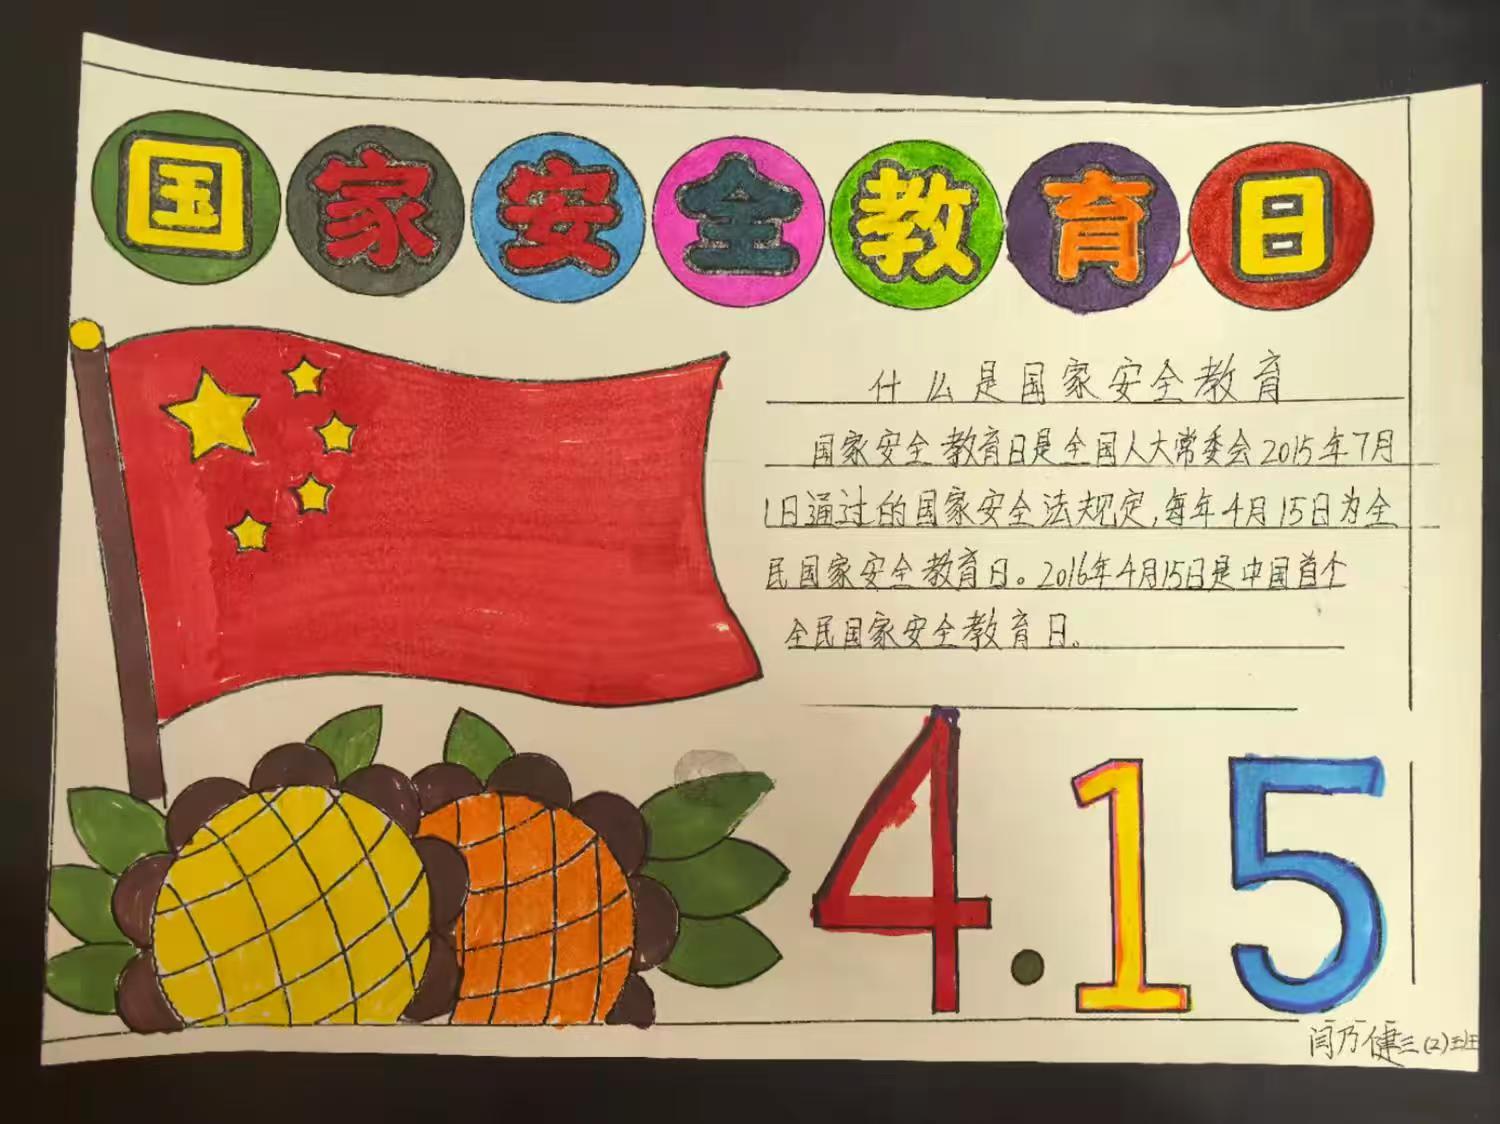 国家安全教育日
什么是国家安全教育
国家安全教育日是全国人大常委会2015年7月
1日通过的国家安全法规定,每年4月15日为全
民国家安全教育日。2016年4月15日是中国首个
全民国家安全教育日。
4.15
闫乃健三(2)班